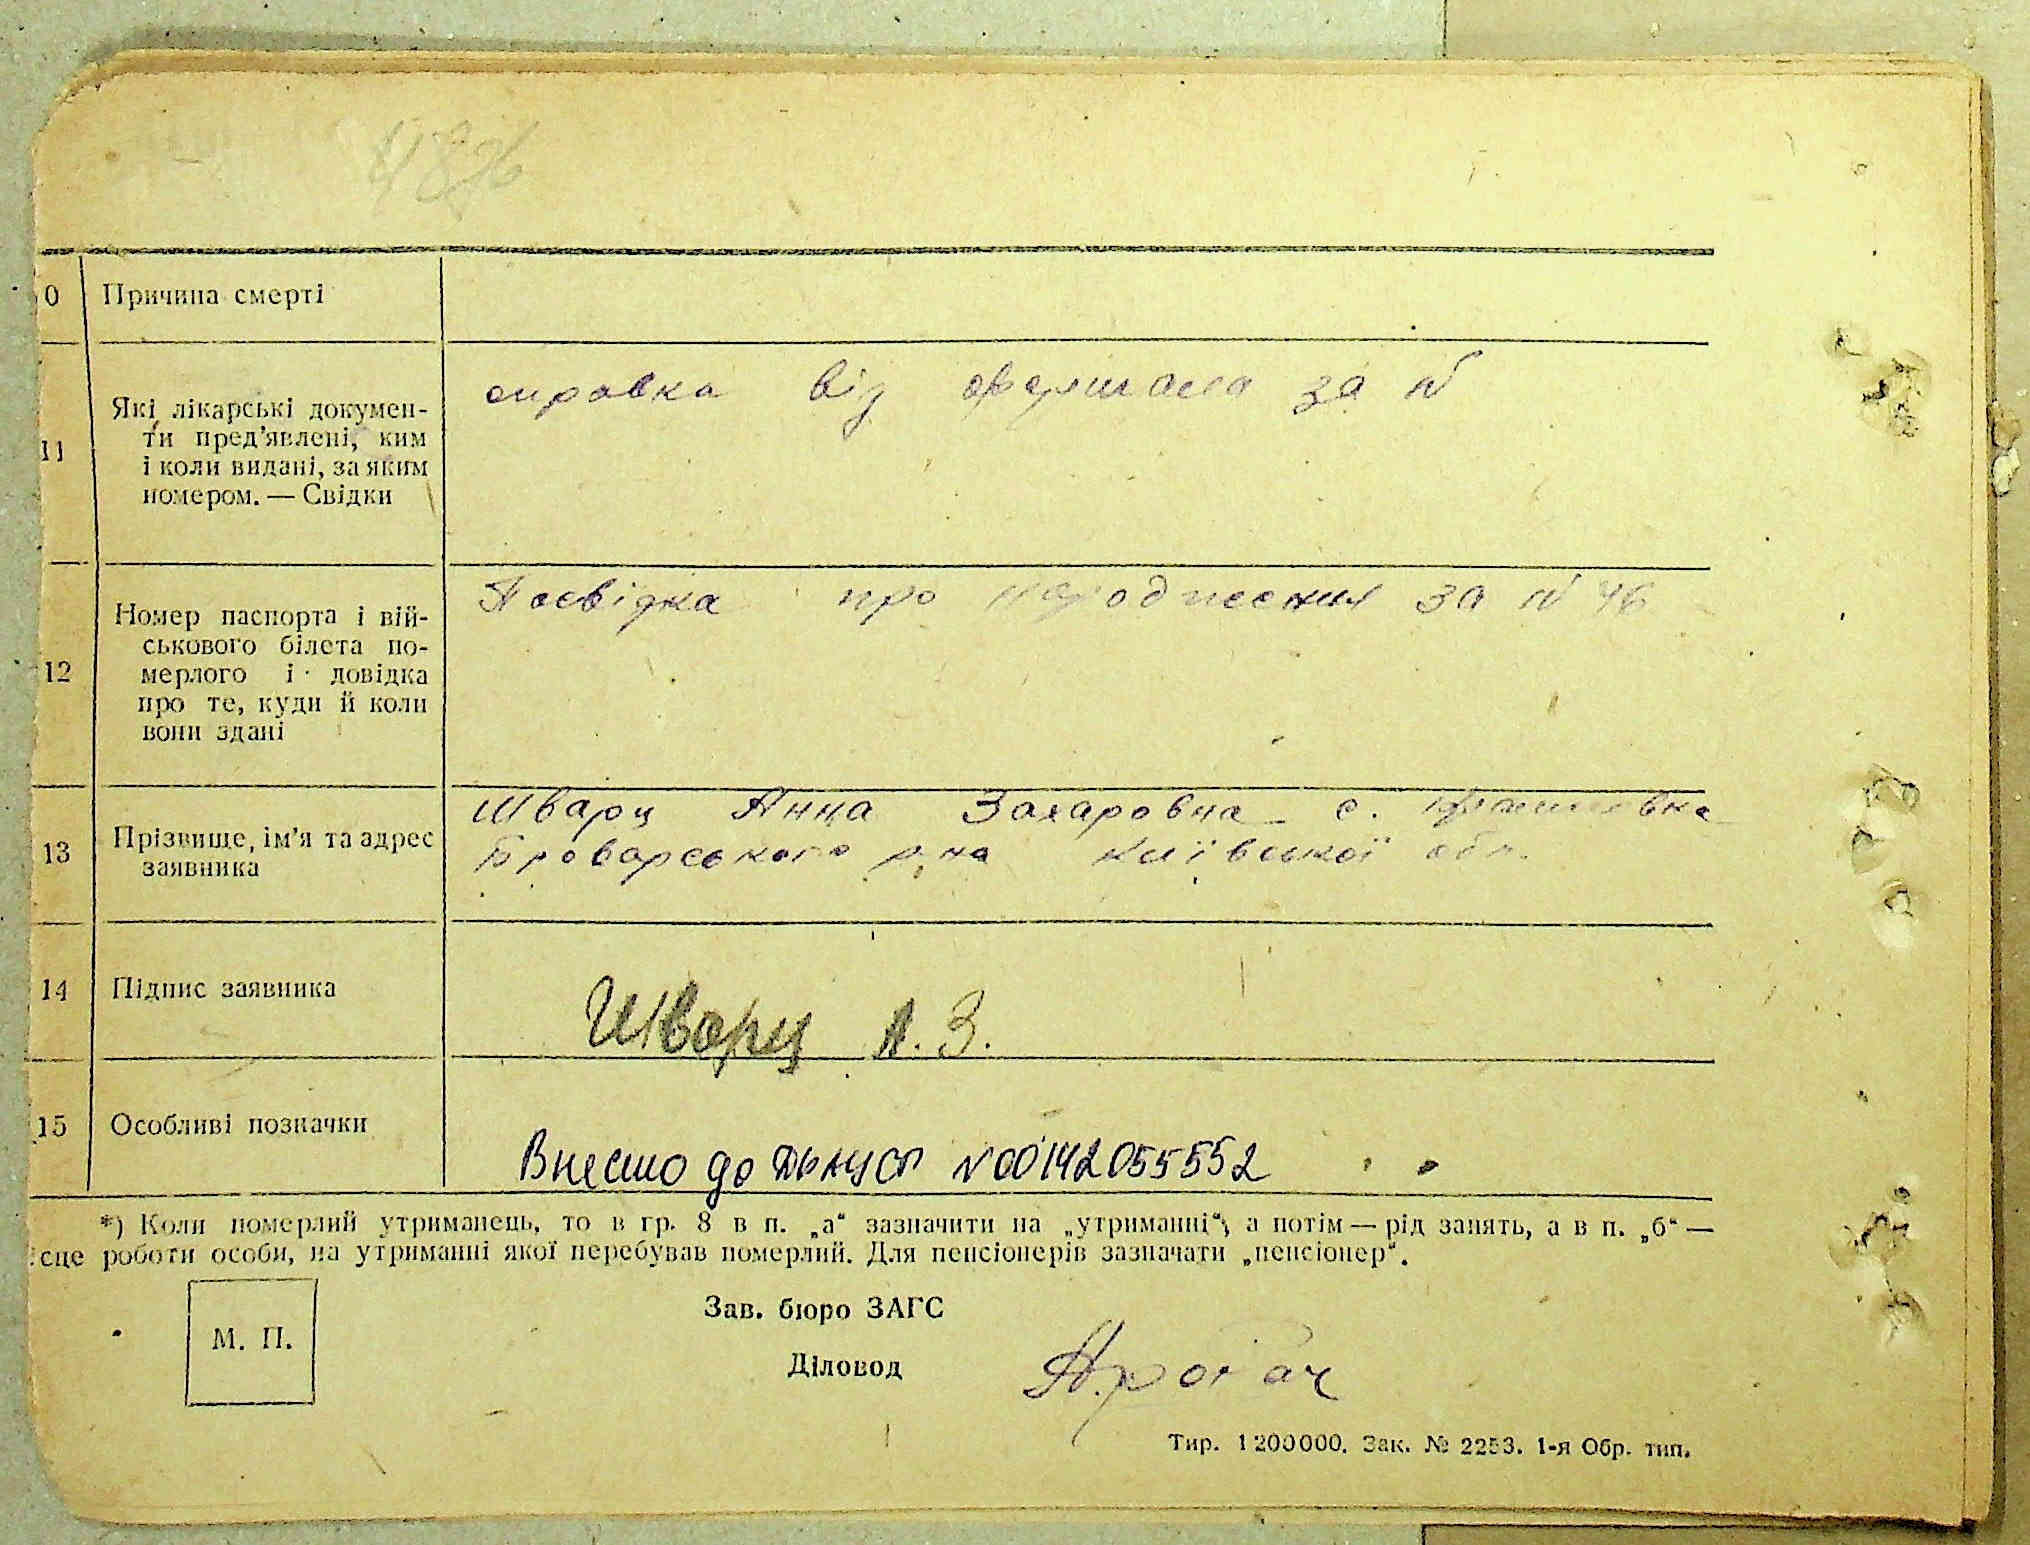 0 Причина смерті
11 Які лікарські докумен-
ти пред'явлені, ким
і коли видані, за яким
номером. — Свідки
справка від за №
12 Номер паспорта і вій-
ськового білета по-
мерлого і довідка
про те, куди й коли
вони здані
Посвідка про за № 46
13 Прізвище, ім'я та адрес
заявника
Шварц Анна Захаровна с.
Броварського р на Київської обл.
14 Підпис заявника
Шварц А. З.
15 Особливі позначки
Внесено до N00142055552
*) Коли померлий утриманець, то в гр. 8 в п. „а“ зазначити на „утриманні“, а потім — рід занять, а в п. „б“ —
сце роботи особи, на утриманні якої перебував померлий. Для пенсіонерів зазначати „пенсіонер“.
М. П.
Зав. бюро ЗАГС
Діловод
Тир. 1200000. Зак. № 2253. 1-я Обр. тип.